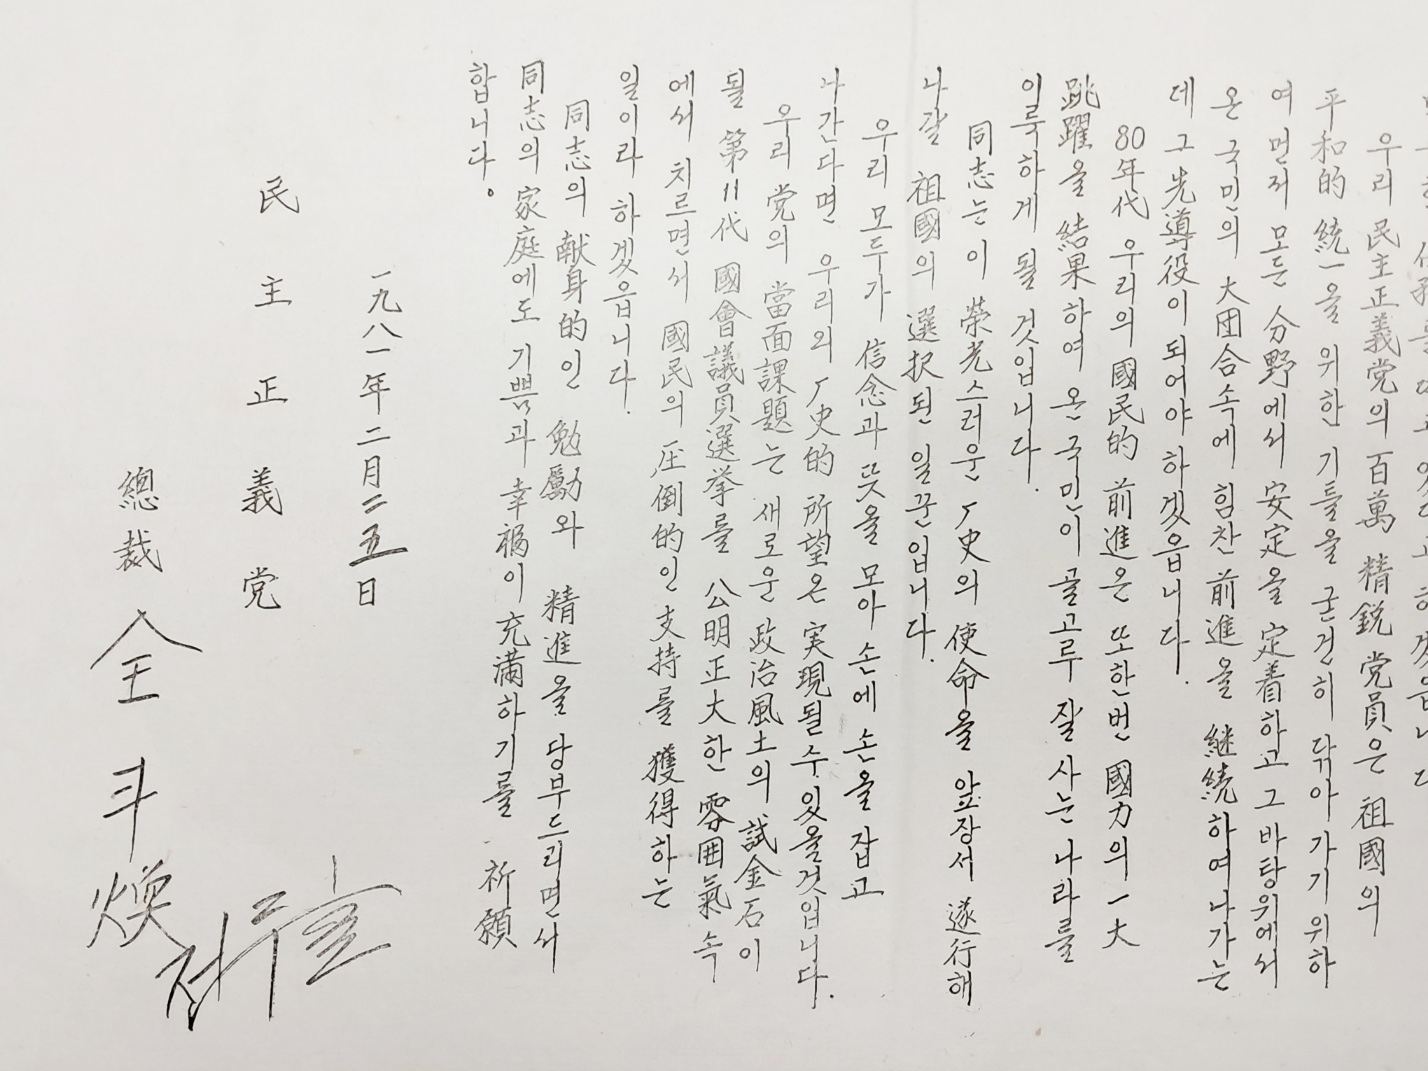 우리 民主正義党의 百萬 精鋭 党員은 祖國의
平和的 統一을 위한 기틀을 굳건히 닦아 가기 위하
여 먼저 모든 分野에서 安定을 定着하고 그 바탕위에서
온 국민의 大団合속에 힘찬 前進을 継続하여 나가는
데 그 先導役이 되어야 하겠읍니다.
80年代 우리의 國民的 前進은 또한번 國力의 一大
跳躍을 結果하여 온 국민이 골고루 잘 사는 나라를
이룩하게 될 것입니다.
同志는 이 榮光스러운 厂史의 使命을 앞장서 遂行해
나갈 祖國의 選択된 일꾼입니다.
우리 모두가 信念과 뜻을 모아 손에 손을 잡고
나간다면 우리의 厂史的 所望은 実現될 수 있을것입니다.
우리 党의 當面課題는 새로운 政治風土의 試金石이
될 第11代 國會議員選挙를 公明正大한 雰囲氣 속
에서 치르면서 國民의 圧倒的인 支持를 獲得하는
일이라 하겠읍니다.
同志의 献身的인 勉勵와 精進을 당부드리면서
同志의 家庭에도 기쁨과 幸福이 充満하기를 祈願
합니다.
一九八一年 二月 二五日
民主正義党
總裁 全斗煥
전두환